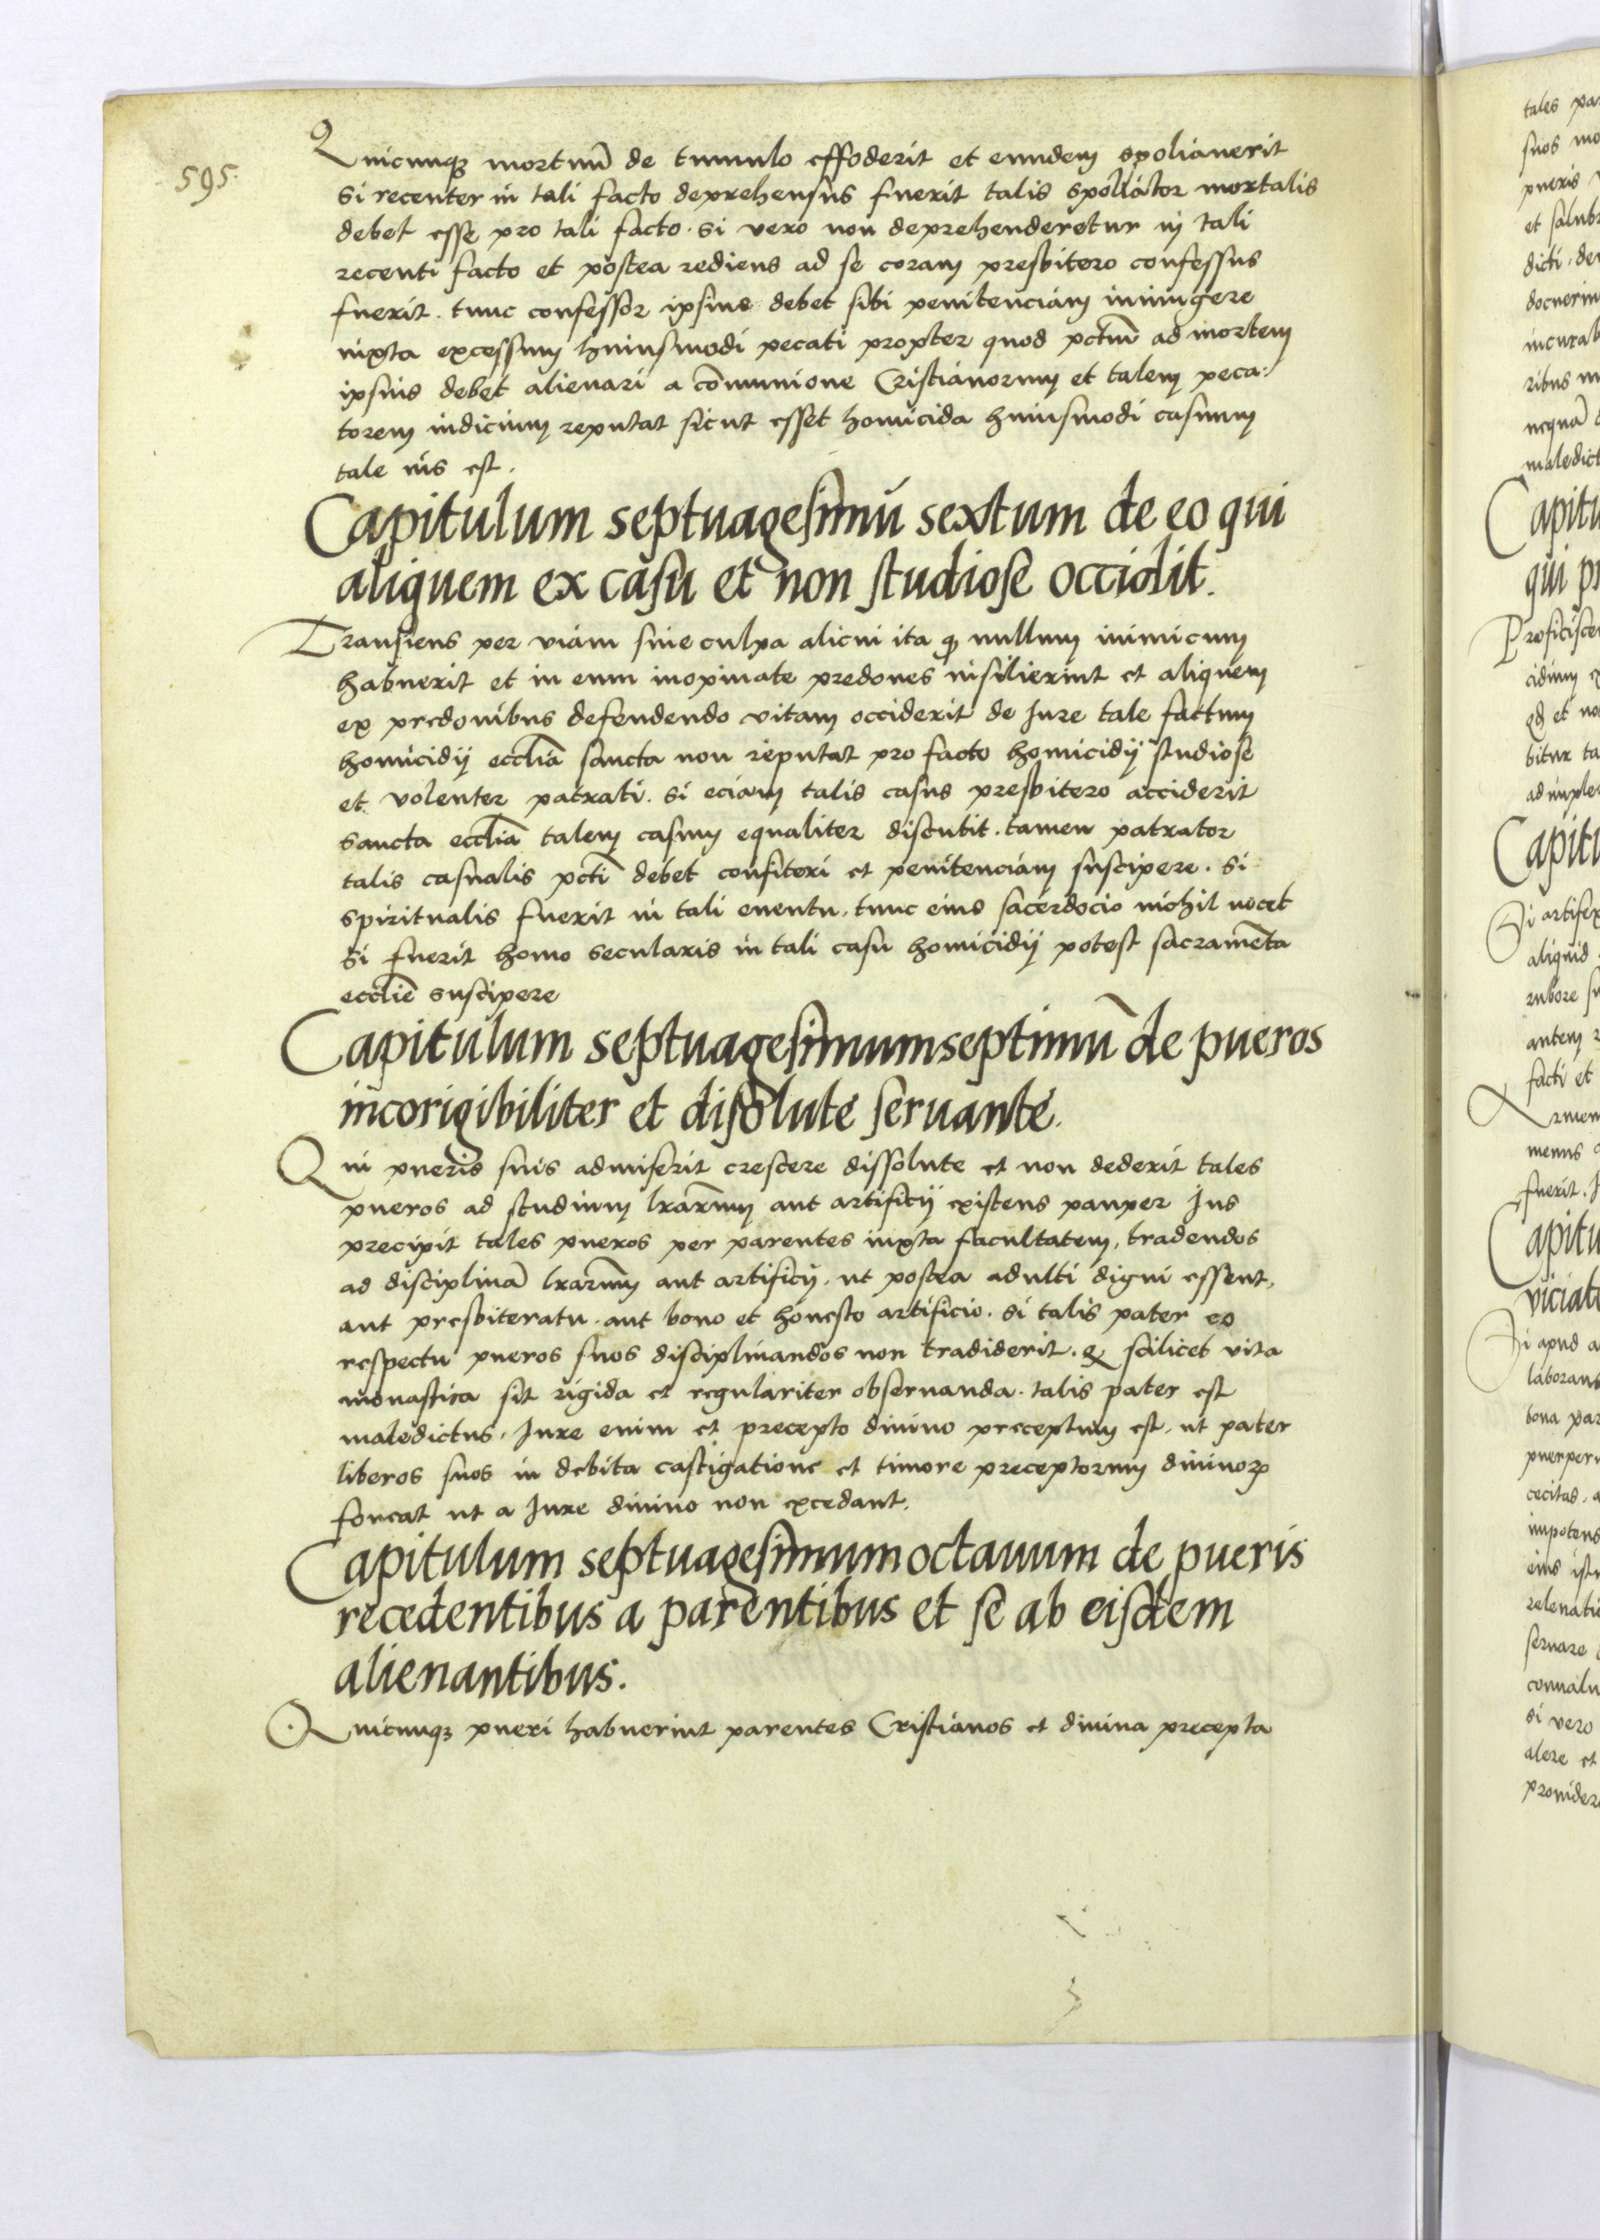 595.
Quicunqꝫ mortuū de tumulo effoderit et eundem spoliauerit
si recenter in tali facto deprehensus fuerit talis spoliator mortalis
debet esse pro tali facto. si vero non deprehenderetur in tali
recenti facto et postea rediens ad se coram presbitero confessus
fuerit. tunc confessor ipsius debet sibi penitenciam iniungere
iuxta excessum huiusmodi pecati propter quod pctm̄ ad mortem
ipsius debet alienari a cōmunione Cristianorum et talem peca:
torem iudicium reputat sicut esset homicida huiusmodi casuum
tale ius est.
Capitulum septuagesimū sextum de eo qui
aliquem ex casu et non studiose occidit.
Transiens per viam sine culpa alicui ita ꝙ nullum inimicum
habuerit et in eum inopinate predones insilierint et aliquem
ex predonibus defendendo vitam occiderit de Iure tale factum
homicidij ecclīa sancta non reputat pro facto homicidij studiose
et volenter patrati. si eciam talis casus presbitero acciderit
sancta ecclīa talem casum equaliter discutit. tamen patrator
talis casualis pcti̅ debet confiteri et penitenciam suscipere. si
spiritualis fuerit in tali euentu. tunc eius sacerdocio nichil nocet
si fuerit homo secularis in tali casu homicidij potest sacramēta
ecclīe suscipere
Capitulum septuagesimumseptimū de pueros
incorigibiliter et disolute seruante.
Qui pueris suis admiserit crescere dissolute et non dederit tales
pueros ad studium lrārum aut artificij existens pauper Ius
precipit tales pueros per parentes iuxta facultatem, tradendos
ad disciplinā lrārum aut artificij. ut postea adulti digni essent,
aut presbiteratu. aut bono et honesto artificio. si talis pater eo
respectu pueros suos disciplinandos non tradiderit. ꝙ scilicet vita
monastica sit rigida et regulariter obseruanda. talis pater est
maledictus. Iure enim et precepto diuino preceptum est. ut pater
liberos suos in debita castigatione et timore preceptorum diuinoꝝ
foueat ut a Iure diuino non excedant.
Capitulum septuagesimumoctauum de pueris
recedentibus a parentibus et se ab eisdem
alienantibus.
Quicunqꝫ pueri habuerint parentes Cristianos et diuina precepta